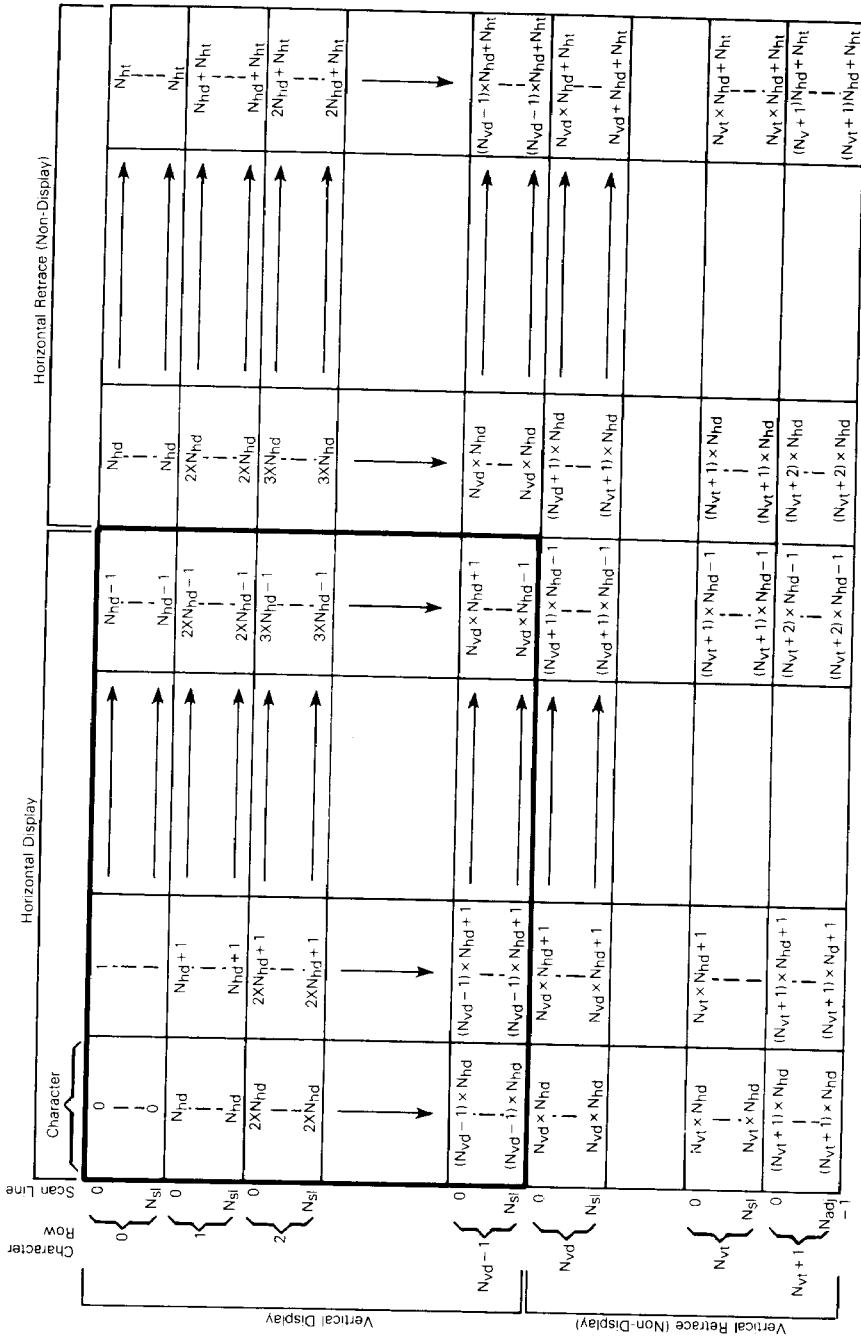 Horizontal Display
Horizontal Retrace (Non-Display)
Character
Character Row
Scan Line
Vertical Display
0
0
0
Nhd − 1
Nhd
Nht
Nsl
0
Nhd − 1
Nhd
Nht
1
0
Nhd
Nhd + 1
2×Nhd − 1
2×Nhd
Nhd + Nht
Nsl
Nhd
Nhd + 1
2×Nhd − 1
2×Nhd
Nhd + Nht
2
0
2×Nhd
2×Nhd + 1
3×Nhd − 1
3×Nhd
2Nhd + Nht
Nsl
2×Nhd
2×Nhd + 1
3×Nhd − 1
3×Nhd
2Nhd + Nht
Nvd − 1
0
(Nvd − 1) × Nhd
(Nvd − 1) × Nhd + 1
Nvd × Nhd + 1
Nvd × Nhd
(Nvd − 1)×Nhd + Nht
Nsl
(Nvd − 1) × Nhd
(Nvd − 1) × Nhd + 1
Nvd × Nhd − 1
Nvd × Nhd
(Nvd − 1)×Nhd + Nht
Vertical Retrace (Non-Display)
Nvd
0
Nvd × Nhd
Nvd × Nhd + 1
(Nvd + 1) × Nhd − 1
(Nvd + 1) × Nhd
Nvd × Nhd + Nht
Nsl
Nvd × Nhd
Nvd × Nhd + 1
(Nvd + 1) × Nhd − 1
(Nvd + 1) × Nhd
Nvd + Nhd + Nht
Nvt
0
Nvt × Nhd
Nvt × Nhd + 1
(Nvt + 1) × Nhd − 1
(Nvt + 1) × Nhd
Nvt × Nhd + Nht
Nsl
Nvt × Nhd
Nvt × Nhd + 1
(Nvt + 1) × Nhd − 1
(Nvt + 1) × Nhd
Nvt × Nhd + Nht
Nvt + 1
0
(Nvt + 1) × Nhd
(Nvt + 1) × Nhd + 1
(Nvt + 2) × Nhd − 1
(Nvt + 2) × Nhd
(Nv + 1)Nhd + Nht
Nadj − 1
(Nvt + 1) × Nhd
(Nvt + 1) × Nd + 1
(Nvt + 2) × Nhd − 1
(Nvt + 2) × Nhd
(Nvt + 1)Nhd + Nht